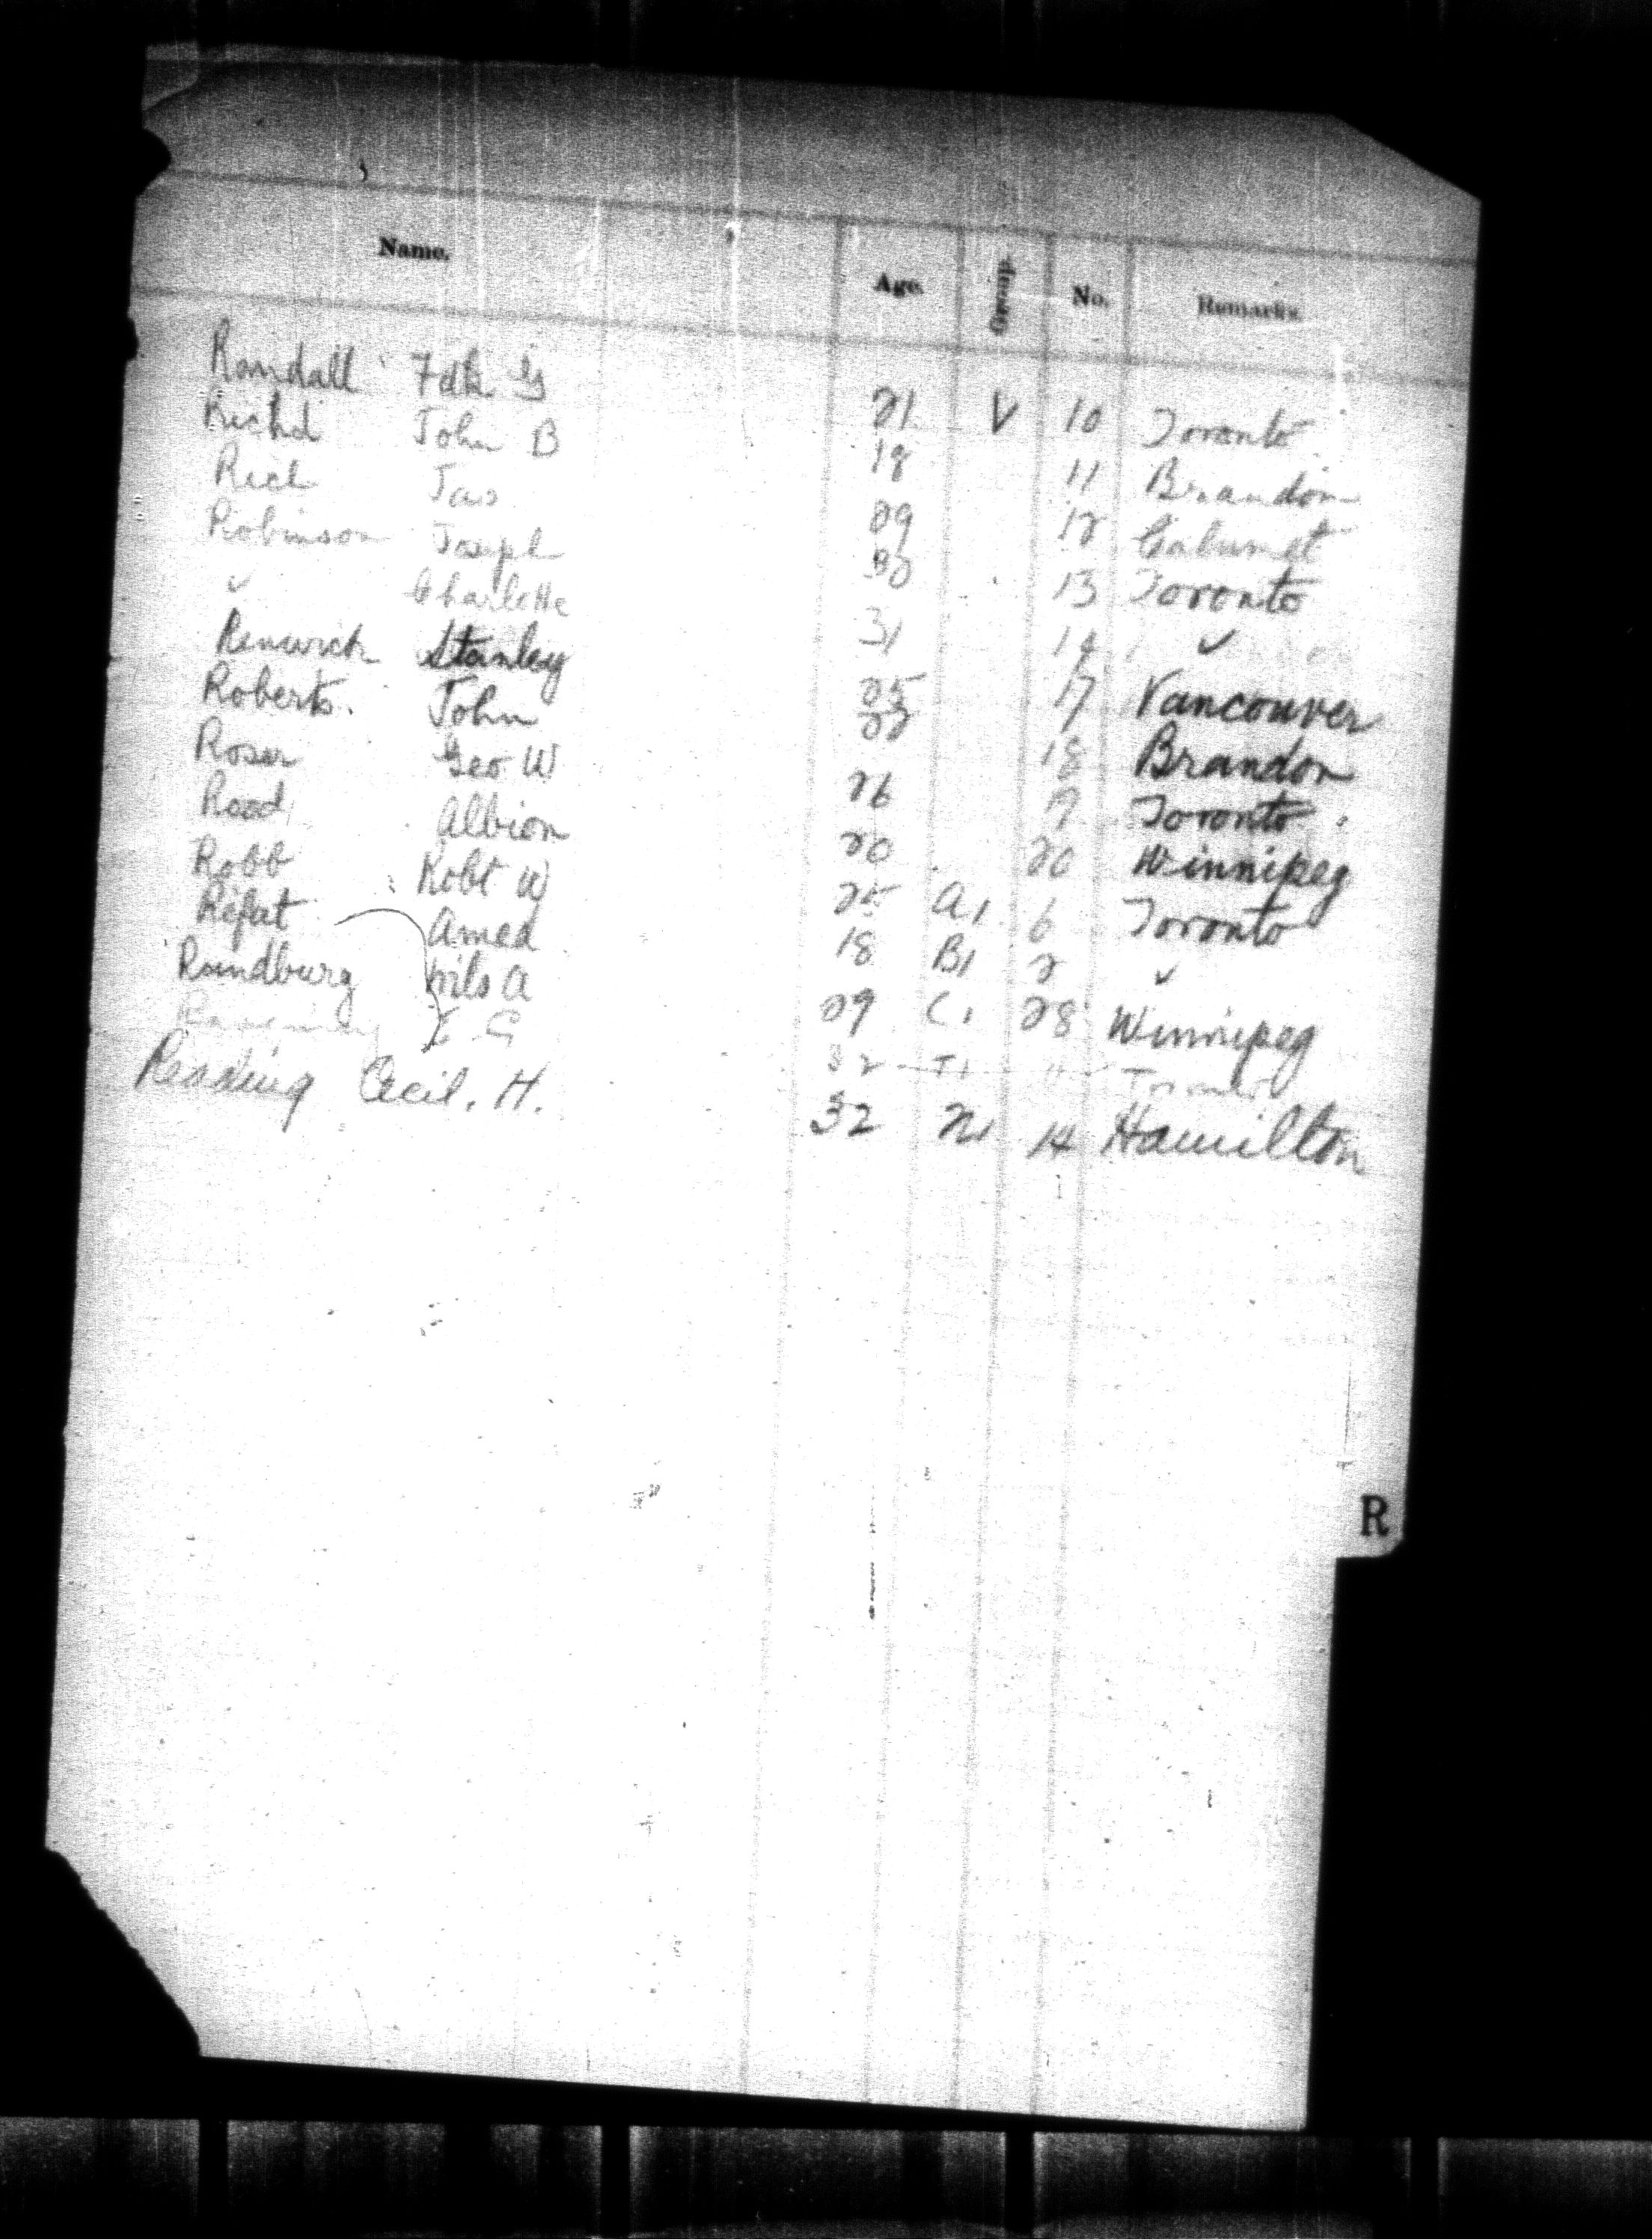 Name. Age. Group. No. Remarks.
Randall Fdk G 21 V 10 Toronto
Richd John B 18 11 Brandon
Rich Jas 29 12 Calumet
Robinson Joseph 30 13 Toronto
✓ Charlotte 31 14 ✓
Renwick Stanley 25 17 Vancouver
Roberts. John 22 18 Brandon
Roser Geo W 26 19 Toronto
Rood Albion 20 20 Winnipeg
Robb Robt W 25 A1 6 Toronto
Refat Amed 18 B1 2 ✓
Rundburg Nils A 29 C1 28 Winnipeg
32
Reading Cecil. H. 32 N1 14 Hamilton
R